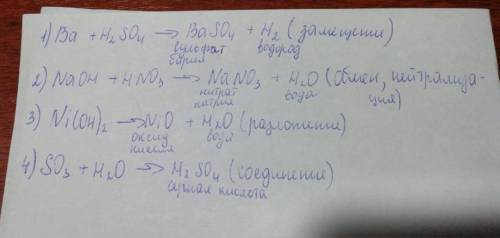 1) Ba + H₂SO₄ → BaSO₄ + H₂ (замещение)
сульфат бария водород
2) NaOH + HNO₃ → NaNO₃ + H₂O (обмен, нейтрализа-
нитрат натрия вода ция)
3) Ni(OH)₂ → NiO + H₂O (разложение)
оксид никеля вода
4) SO₃ + H₂O → H₂SO₄ (соединение)
серная кислота